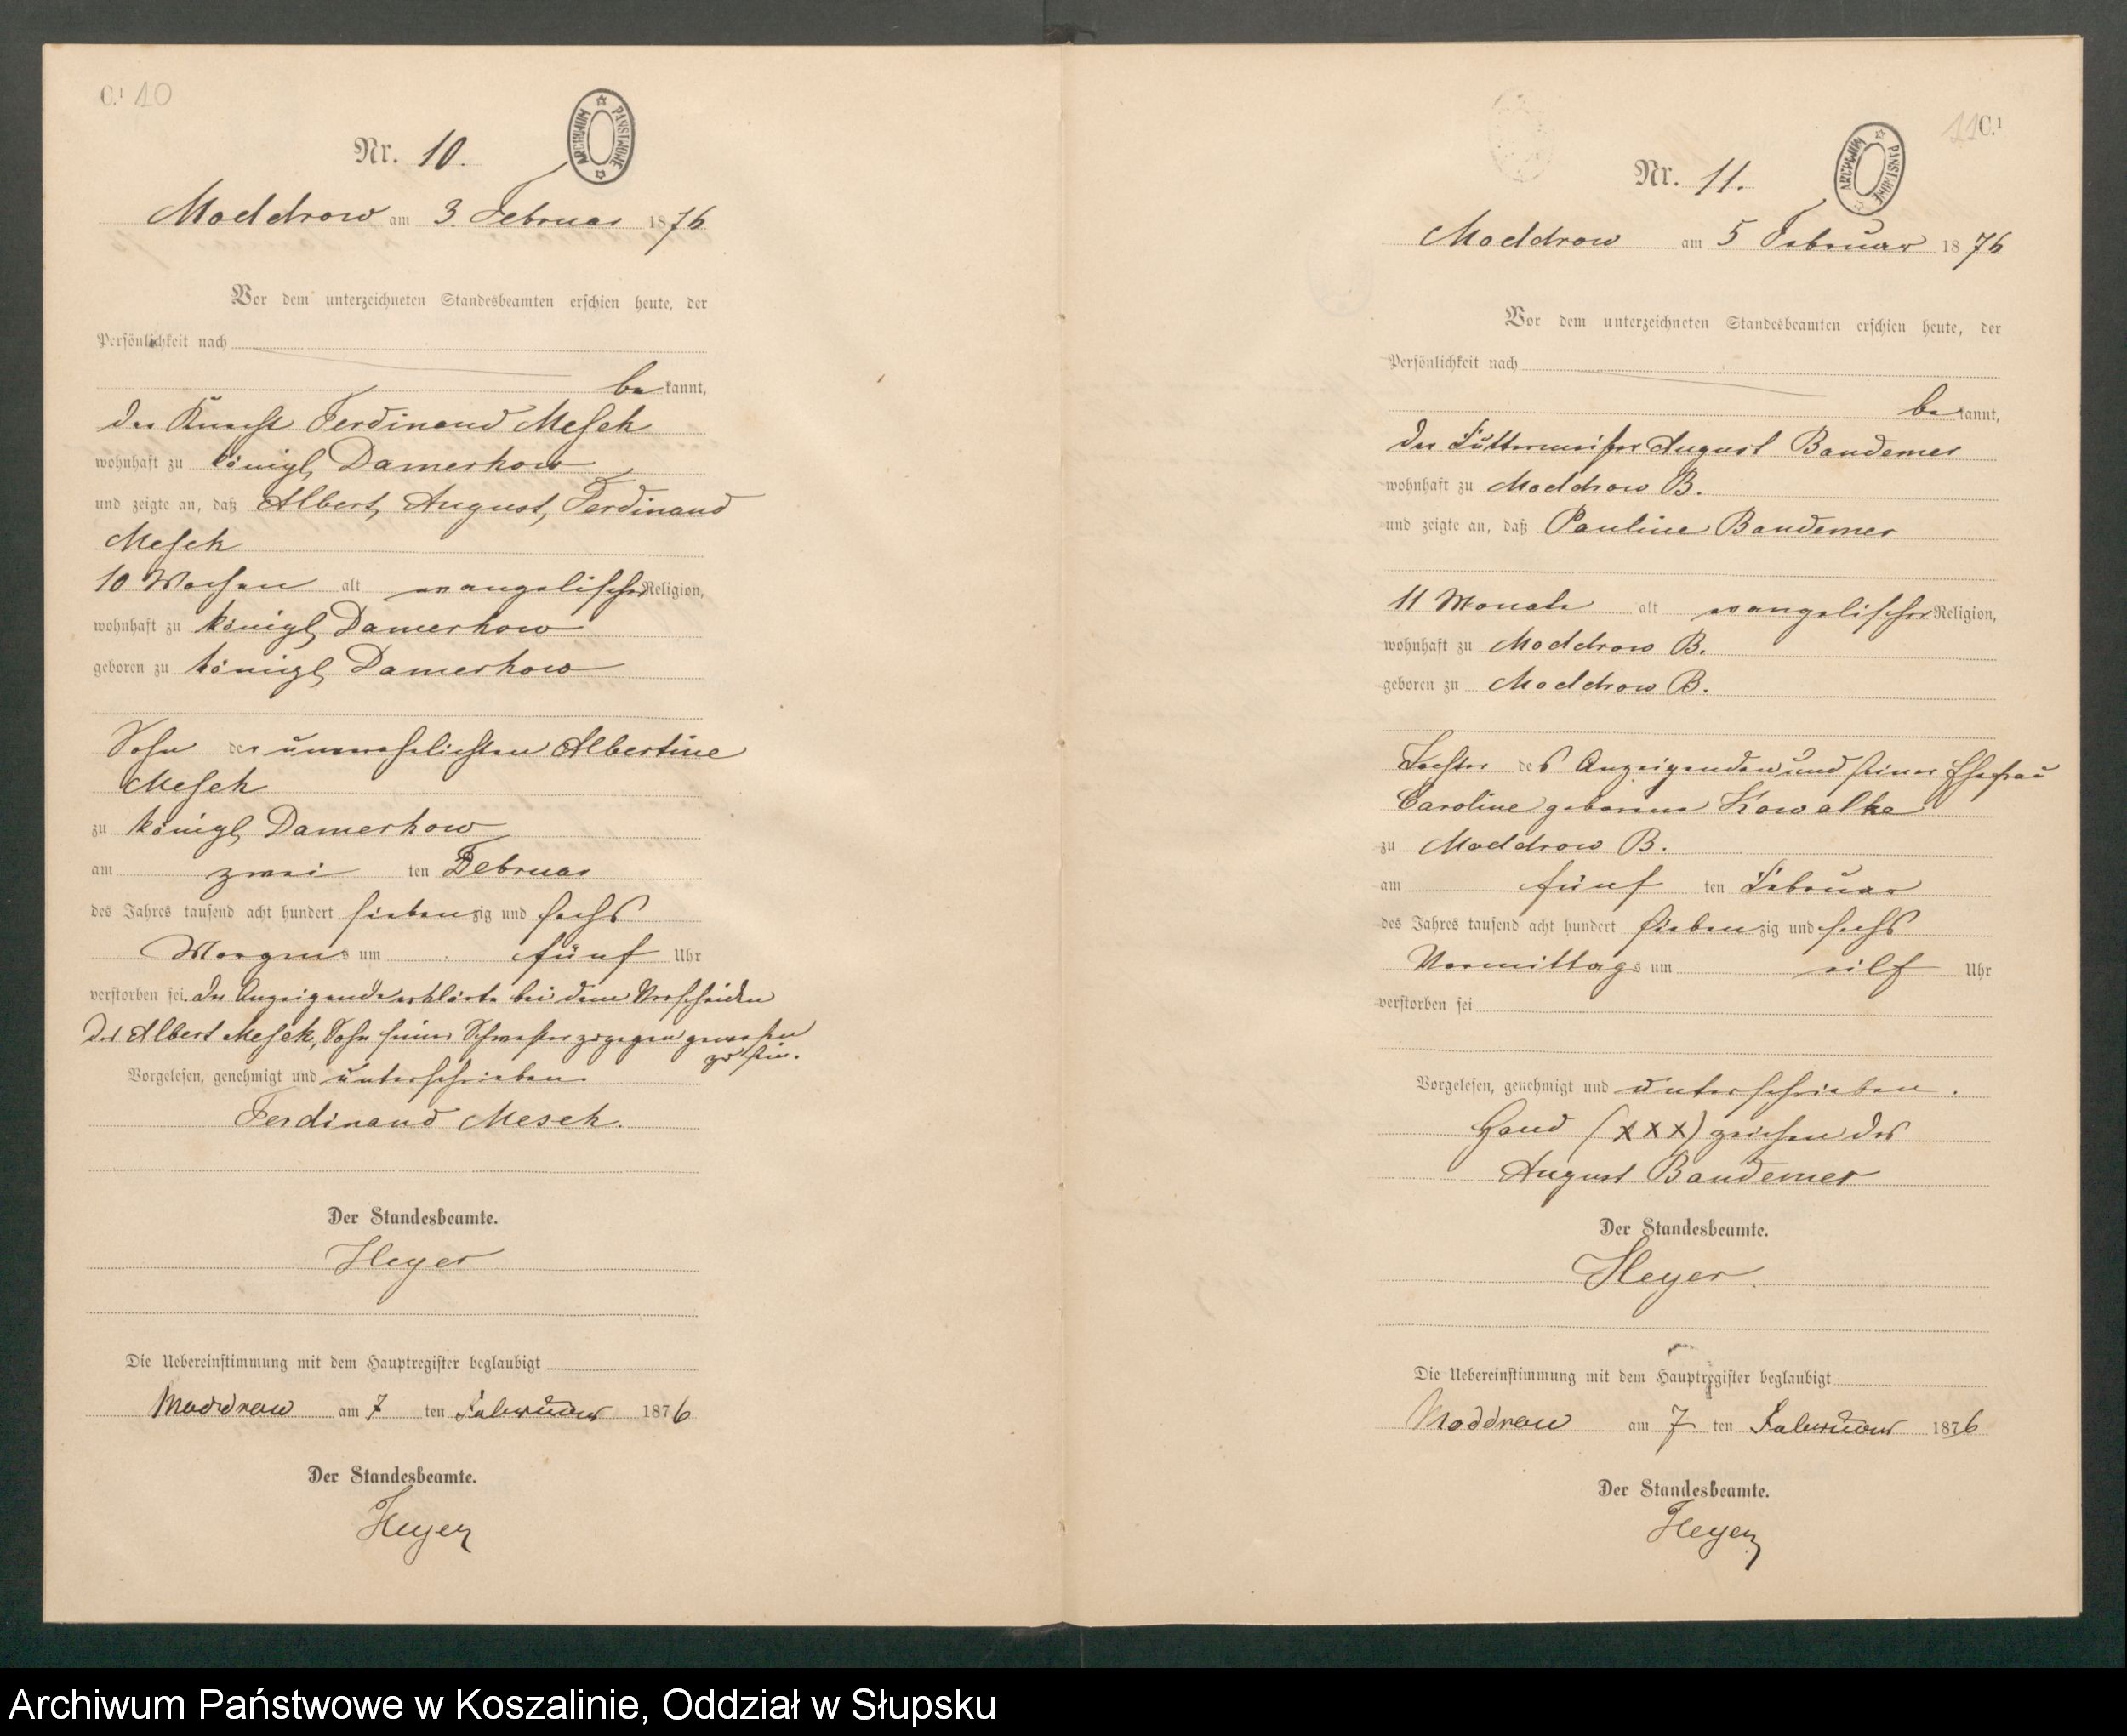 C.¹ 10
ARCHIWUM PAŃSTWOWE
Nr. 10.
Moddrow am 3. Februar 1876
Vor dem unterzeichneten Standesbeamten erschien heute, der
Persönlichkeit nach
be kannt,
der Knecht Ferdinand Mesek
wohnhaft zu königl. Damerkow
und zeigte an, daß Albert, August, Ferdinand
Mesek
10 Wochen alt evangelischer Religion,
wohnhaft zu königl. Damerkow
geboren zu königl. Damerkow
Sohn der unverehelichten Albertine
Mesek
zu königl. Damerkow
am zwei ten Februar
des Jahres tausend acht hundert siebenzig und sechs
Morgens um fünf Uhr
verstorben sei. Der Anzeigende erklärte bei dem Verscheiden
des Albert Mesek, Sohn seiner Schwester zugegen gewesen
zu sein.
Vorgelesen, genehmigt und unterschrieben
Ferdinand Mesek.
Der Standesbeamte.
Heyer
Die Uebereinstimmung mit dem Hauptregister beglaubigt
Moddrow am 7 ten Februar 1876
Der Standesbeamte.
Heyer
11 C.¹
ARCHIWUM PAŃSTWOWE
Nr. 11.
Moddrow am 5 Februar 1876
Vor dem unterzeichneten Standesbeamten erschien heute, der
Persönlichkeit nach
be kannt,
der Futtermeister August Bandemer
wohnhaft zu Moddrow B.
und zeigte an, daß Pauline Bandemer
11 Monate alt evangelischer Religion,
wohnhaft zu Moddrow B.
geboren zu Moddrow B.
Tochter des Anzeigenden und seiner Ehefrau
Caroline geborene Kowalke
zu Moddrow B.
am fünf ten Februar
des Jahres tausend acht hundert siebenzig und sechs
Vormittags um eilf Uhr
verstorben sei
Vorgelesen, genehmigt und unterschrieben.
Hand (XXX) zeichen des
August Bandemer
Der Standesbeamte.
Heyer.
Die Uebereinstimmung mit dem Hauptregister beglaubigt
Moddrow am 7 ten Februar 1876
Der Standesbeamte.
Heyer
Archiwum Państwowe w Koszalinie, Oddział w Słupsku